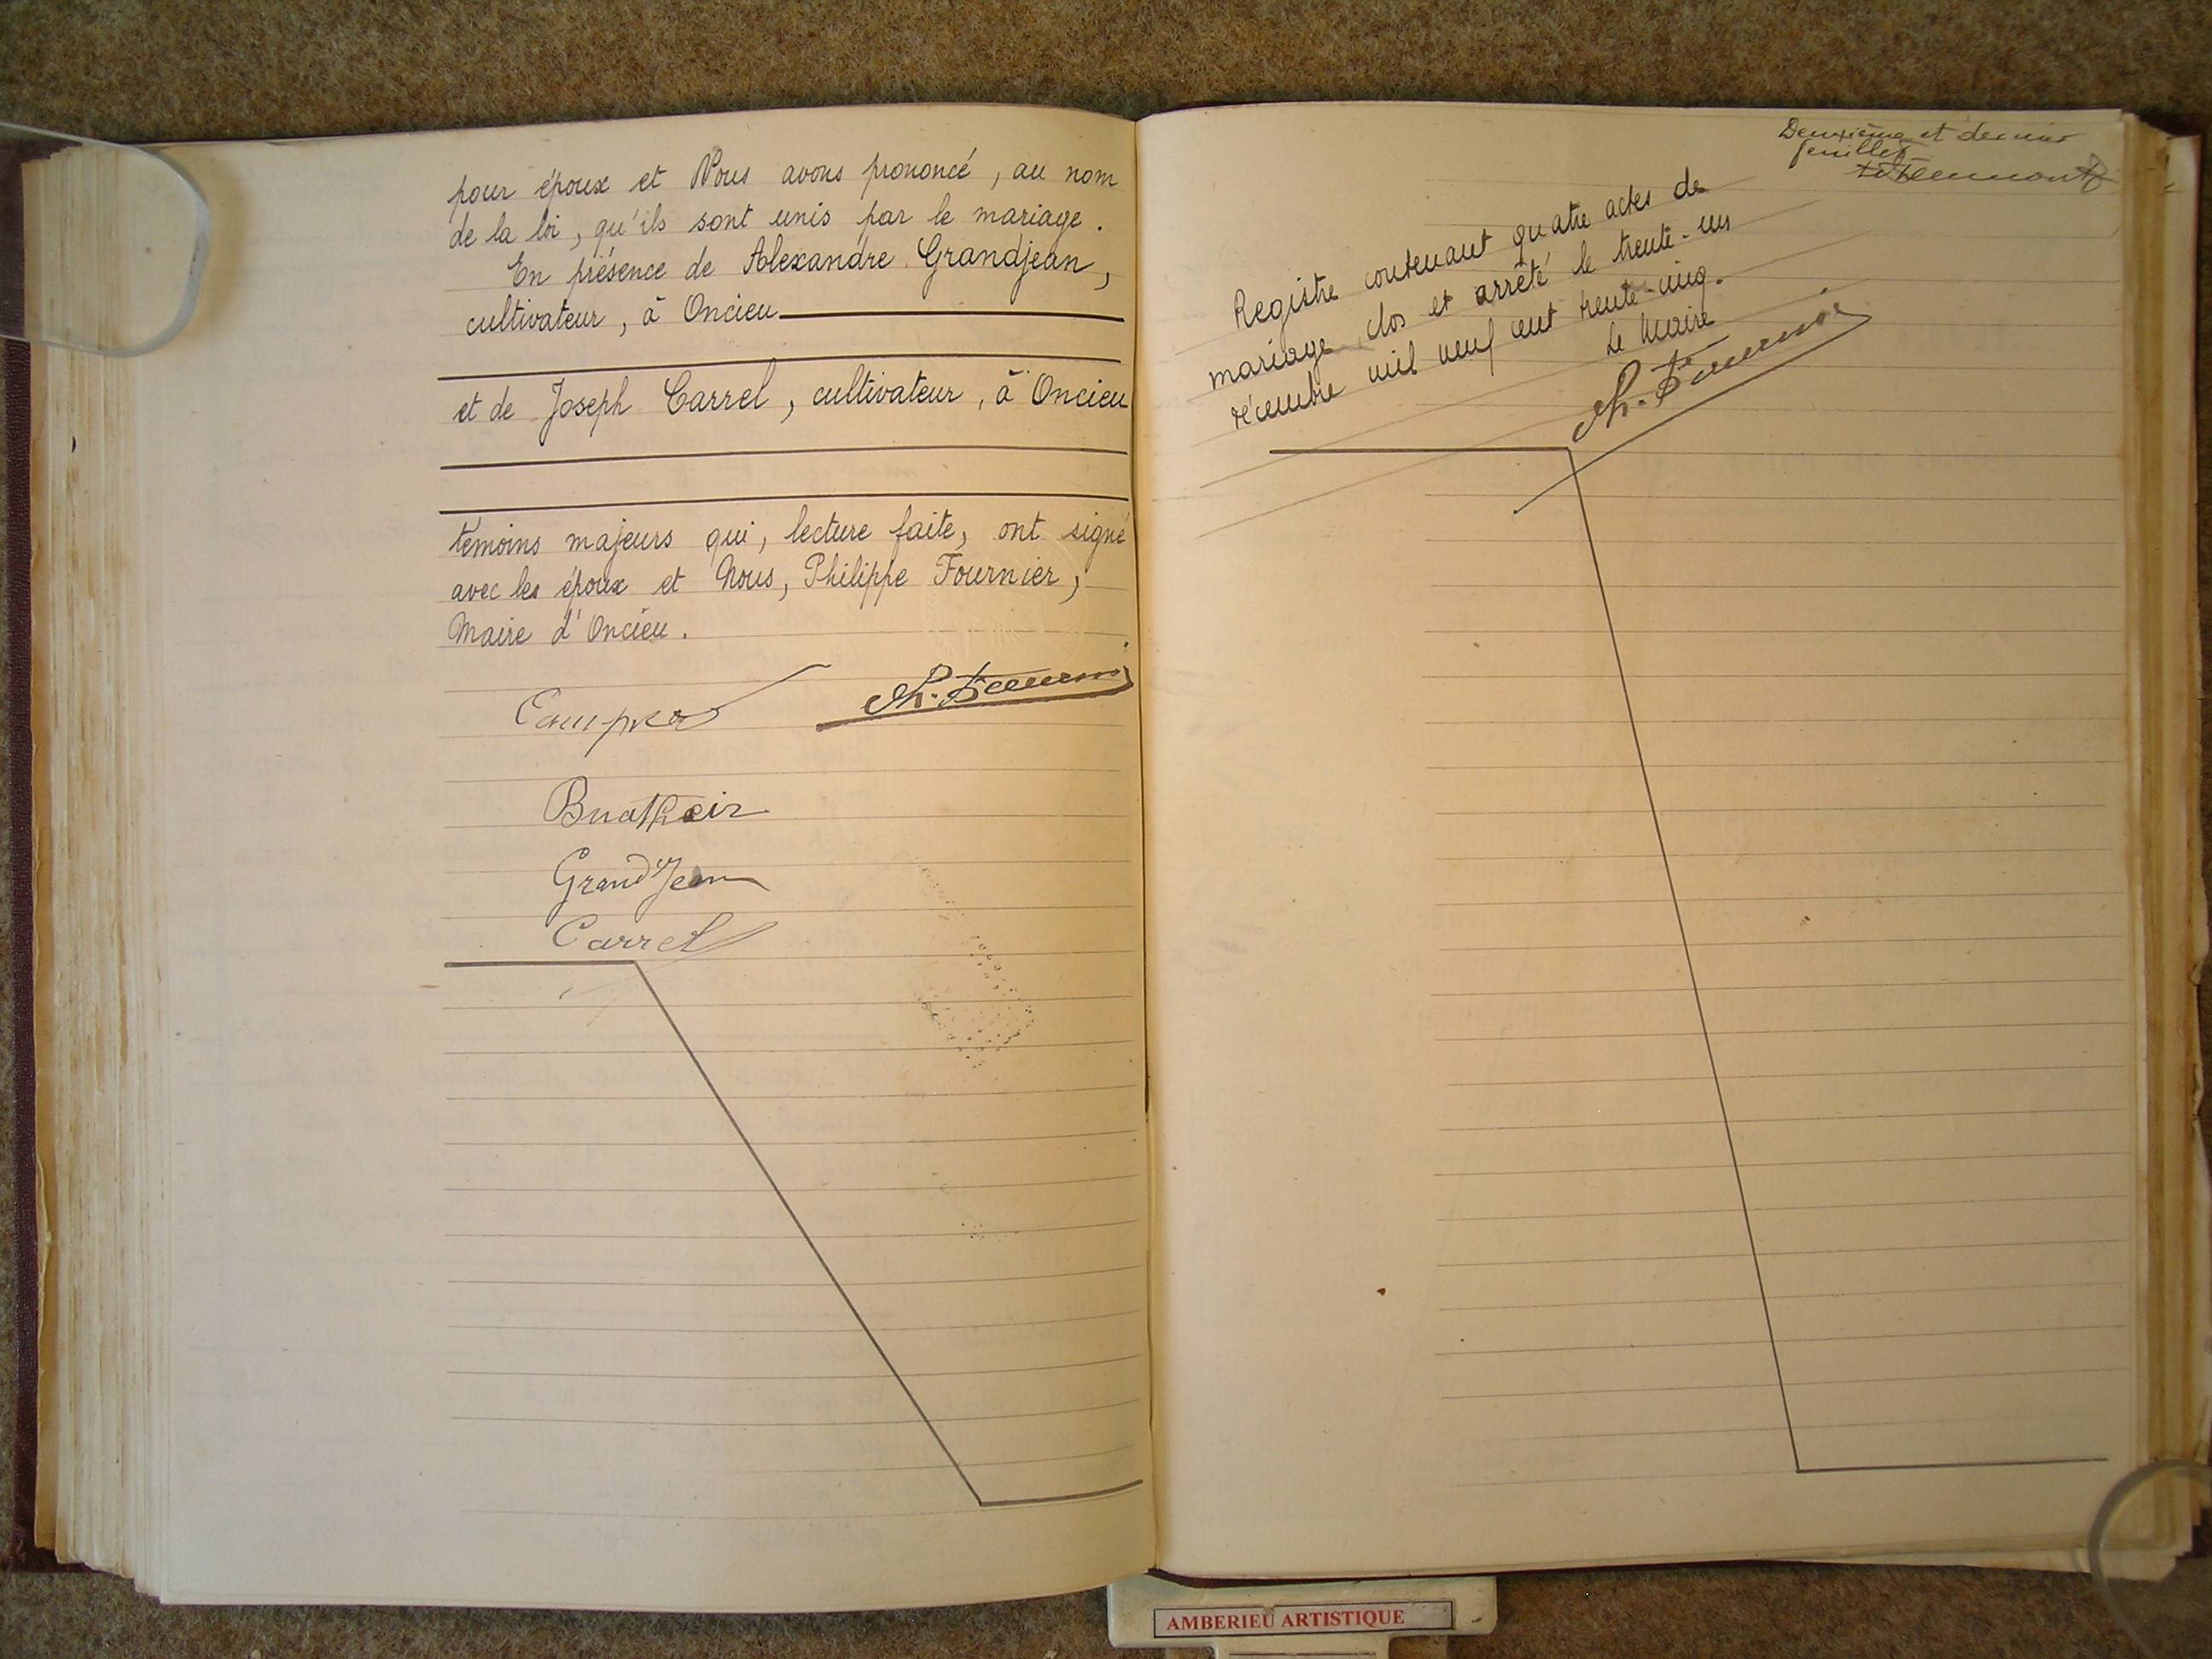 pour époux et Nous avons prononcé, au nom
de la loi, qu'ils sont unis par le mariage.
En présence de Alexandre Grandjean,
cultivateur, à Oncieu
et de Joseph Carrel, cultivateur, à Oncieu
témoins majeurs qui, lecture faite, ont signé
avec les époux et Nous, Philippe Fournier,
Maire d'Oncieu.
Ph. Fournier
Buathier
GrandJean
Carrel
Deuxième et dernier
feuillet
Registre contenant quatre actes de
mariage, clos et arrêté le trente-un
décembre mil neuf cent trente-cinq.
Le Maire
Ph. Fournier
AMBERIEU ARTISTIQUE